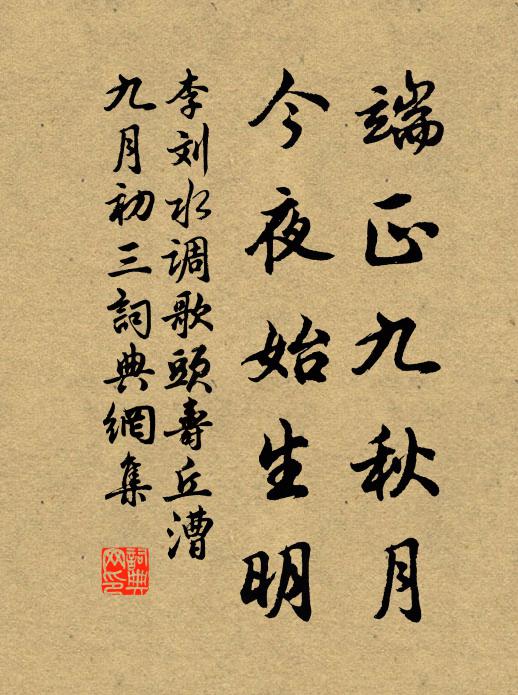 端正九秋月
今夜始生明
李刘水调歌頭壽丘漕
九月初三詞典網集
詞典網印